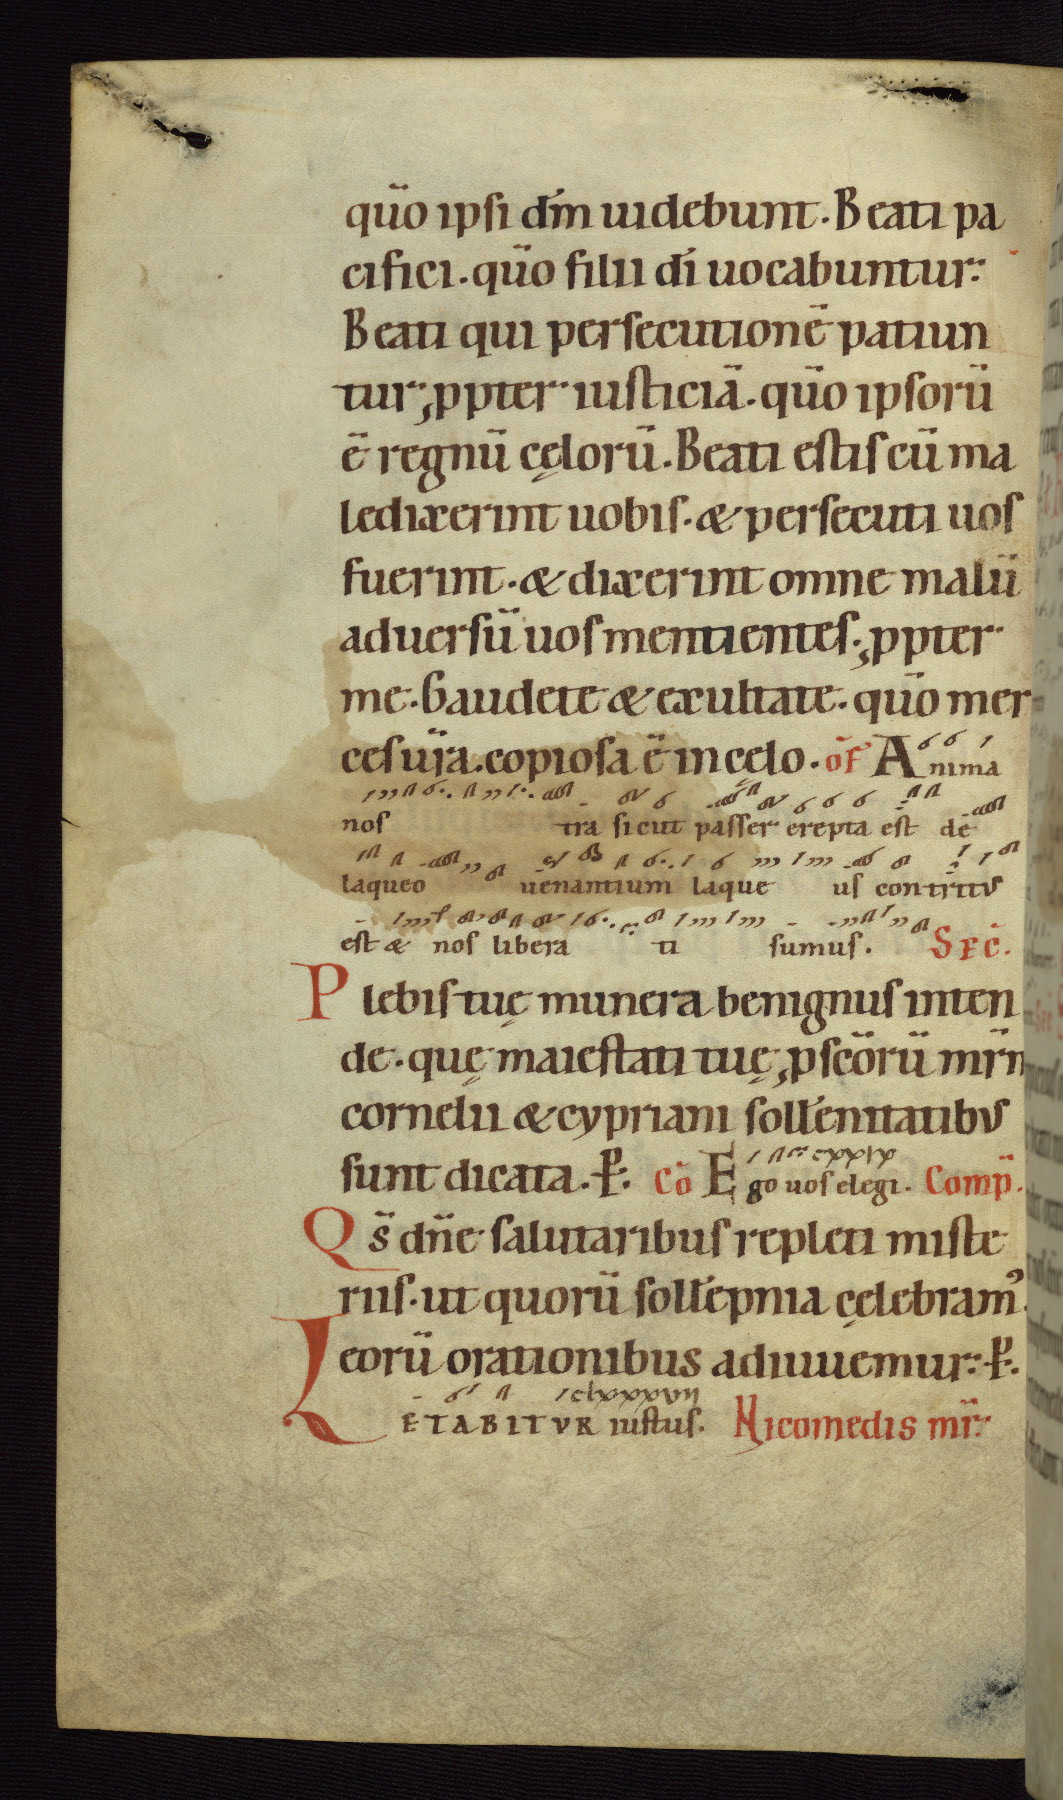 qm̄o ipsi dn̄m uidebunt. Beati pa
cifici. qm̄o filii di uocabuntur.
Beati qui persecutionē patiun
tur ꝓpter iusticiā. qm̄o ipsorū
ē regnū cęlorū. Beati estis cū ma
ledixerint uobis. & persecuti uos
fuerint. & dixerint omne malū
aduersū uos mentientes. ꝓpter
me. Gaudete & exultate. qm̄o mer
ces ur̄a. copiosa ē in cęlo. of̄ Anima
nos tra sicut passer erepta est de
laqueo uenantium laque us contritus
est & nos libera ti sumus. Sec̄.
Plebis tuę munera benignus inten
de. quę maiestati tuę ꝓ sc̄orū mr̄m
cornelii & cypriani sollēnitatibus
sunt dicata. P. Cō Ego uos elegi. Comp̄.
Qs̄ dn̄e salutaribus repleti miste
riis. ut quorū sollēpnia cęlebramꝰ.
eorū orationibus adiuuemur. P.
LETABITVR iustus. Nicomedis mr̄.